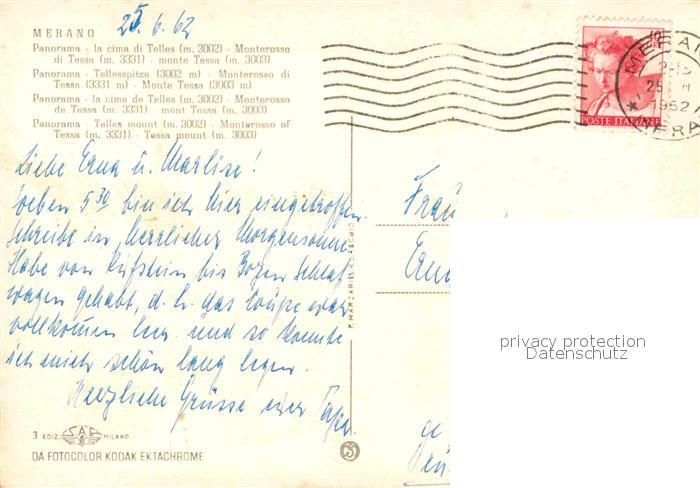 MERANO 25.6.62
Panorama - la cima di Telles (m. 3002) - Monterosso
di Tessa (m. 3331) - monte Tessa (m. 3003)
Panorama - Tellesspitze (3002 m) - Monterosso di
Tessa (3331 m) - Monte Tessa (3003 m)
Panorama - la cime de Telles (m. 3002) - Monterosso
de Tessa (m. 3331) - mont Tessa (m. 3003)
Panorama - Telles mount (m. 3002) - Monterosso of
Tessa (m. 3331) - Tessa mount (m. 3003)
POSTE ITALIANE
MERANO
25
1962
MERA
Liebe Erna u. Marlise!
Soeben 5 30 bin ich hier eingetroffen.
Schreibe in herrlicher Morgensonne.
Habe von Kufstein bis Bozen Schlaf-
wagen gehabt, d. h. das Coupe war
vollkommen leer und so konnte
ich mich schön lang legen.
Herzliche Grüsse euer Papa
Frau
Erna
privacy protection
Datenschutz
3 EDIZ. SAF MILANO
DA FOTOCOLOR KODAK EKTACHROME